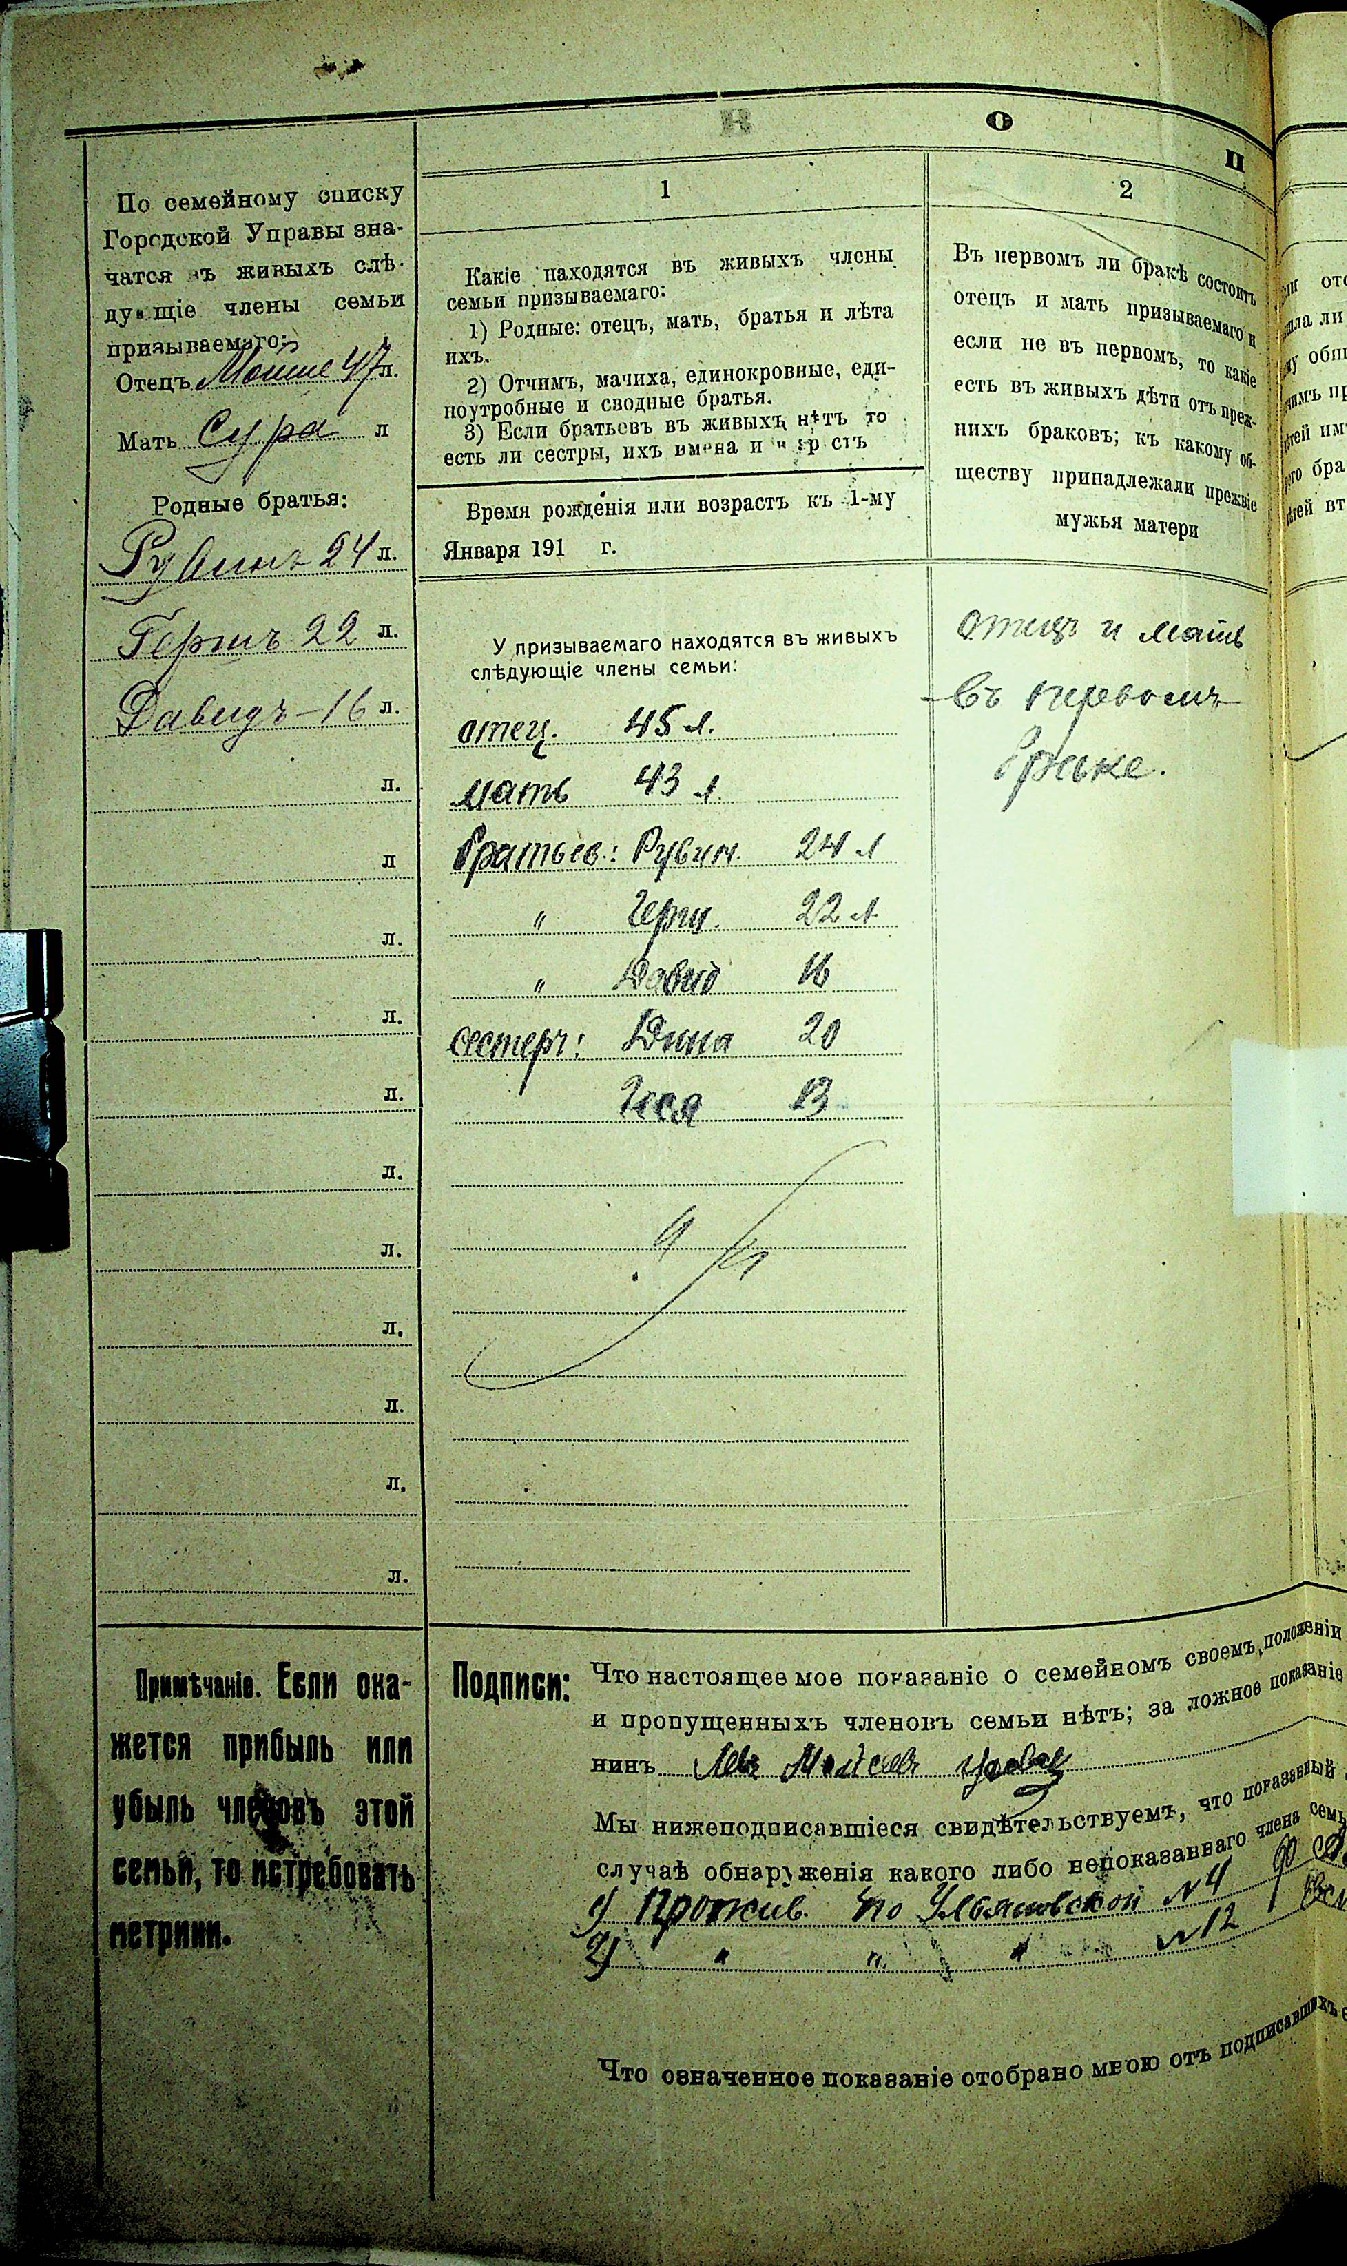 К О П
По семейному списку
Городской Управы зна-
чатся въ живыхъ слѣ-
дующіе члены семьи
призываемаго:
Отецъ Мойше 47 л.
Мать Сура л
Родные братья:
Рувинъ 24 л.
Гершъ 22 л.
Давидъ - 16 л.
л.
л
л.
л.
л.
л.
л.
л.
л.
л.
л.
1
Какіе находятся въ живыхъ члены
семьи призываемаго:
1) Родные: отецъ, мать, братья и лѣта
ихъ.
2) Отчимъ, мачиха, единокровные, еди-
ноутробные и сводные братья.
3) Если братьевъ въ живыхъ нѣтъ то
есть ли сестры, ихъ имена и
Время рожденія или возрастъ къ 1-му
Января 191 г.
У призываемаго находятся въ живыхъ
слѣдующіе члены семьи:
отец. 45 л.
мать 43 л.
братьев: Рувин. 24 л
" Герш. 22 л.
" Давид 16
сестеръ: Дина 20
Іося 13
2
Въ первомъ ли бракѣ состоитъ
отецъ и мать призываемаго и
если не въ первомъ, то какіе
есть въ живыхъ дѣти отъ преж-
нихъ браковъ; къ какому об-
ществу принадлежали прежніе
мужья матери
отецъ и мать
въ первомъ
браке.
Примѣчаніе. Если ока-
жется прибыль или
убыль членовъ этой
семьи, то истребовать
метрики.
Подписи: Что настоящее мое показаніе о семейномъ своемъ положеніи
и пропущенныхъ членовъ семьи нѣтъ; за ложное показаніе
нинъ
Мы нижеподписавшіеся свидѣтельствуемъ, что показанный
случаѣ обнаруженія какого либо непоказаннаго члена семь
1) Прожив. по Ульяновской № 4
2) " " " № 12
Что означенное показаніе отобрано мною отъ подписавшихъ